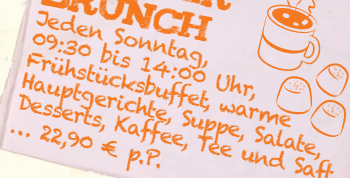 BRUNCH
Jeden Sonntag,
09:30 bis 14:00 Uhr,
Frühstücksbuffet, warme
Hauptgerichte, Suppe, Salate,
Desserts, Kaffee, Tee und Saft
... 22,90 € p.P.